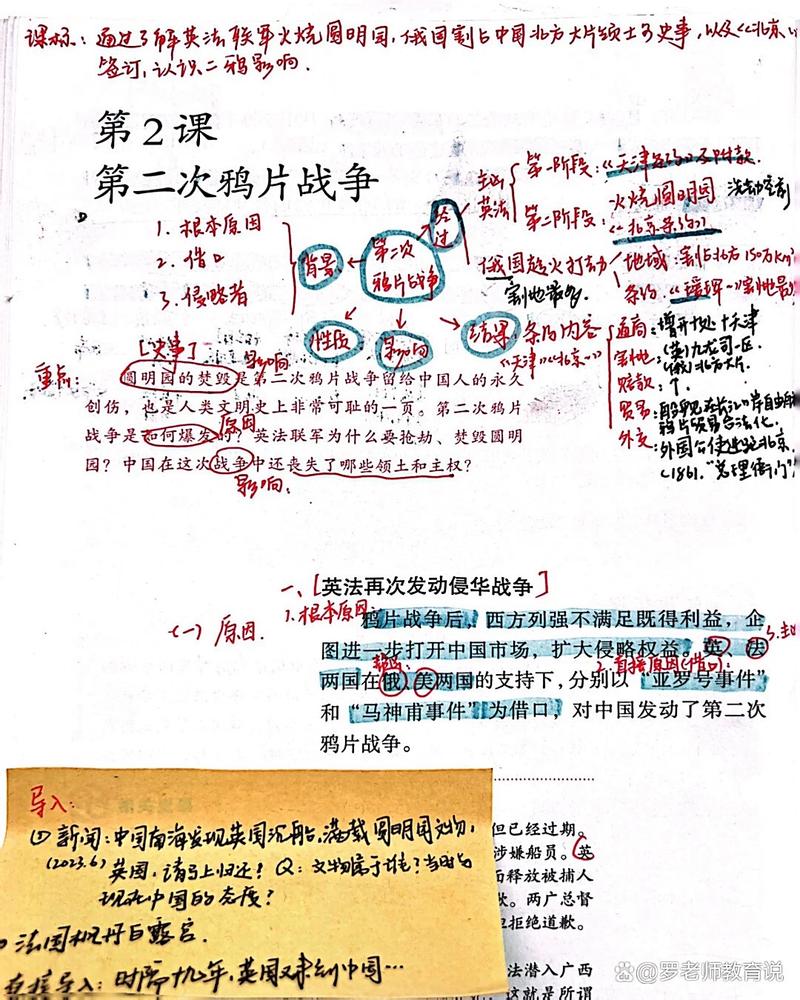 课标：通过了解英法联军火烧圆明园，俄国割占中国北方大片领土的史事，以及《北京
签订，认识二鸦影响．
第2课
第二次鸦片战争
1. 根本原因
2. 借口
3. 侵略者
背景
第二次
鸦片战争
经过
性质
影响
结果
主凶
英法
第一阶段：《天津条约》及附款．
第二阶段：
火烧圆明园
《北京条约》
俄国趁火打劫
割地最多
地域：割占北方150万km²
条约：《瑷珲
条约内容
《天津》《北京
通商：增开十处 十天津
割地：(英)九龙司一区．
(俄)北方大片．
赔款：
贸易：
鸦片贸易合法化．
外交：外国公使进驻北京．
(1861．"总理衙门"
[史事]
影响
重点：
圆明园的焚毁是第二次鸦片战争留给中国人的永久
创伤，也是人类文明史上非常可耻的一页。第二次鸦片
原因
战争是如何爆发的？英法联军为什么要抢劫、焚毁圆明
园？中国在这次战争中还丧失了哪些领土和主权？
影响：
一、[英法再次发动侵华战争]
(一) 原因．
1. 根本原因：
鸦片战争后，西方列强不满足既得利益，企
图进一步打开中国市场，扩大侵略权益。英、法
2. 直接原因(借口)：
两国在俄、美两国的支持下，分别以“亚罗号事件”
和“马神甫事件”为借口，对中国发动了第二次
鸦片战争。
导入：
① 新闻：中国南海发现英国沉船，满载圆明园文物，
(2023.6) 英国，请马上归还！Q：文物属于谁？当时与
现在中国的态度？
法国枫丹白露宫．
直接导入：时隔十九年，英国又来到中国…
但已经过期。
涉嫌船员。英
而释放被捕人
。两广总督
但拒绝道歉。
法潜入广西
这就是所谓
罗老师教育说